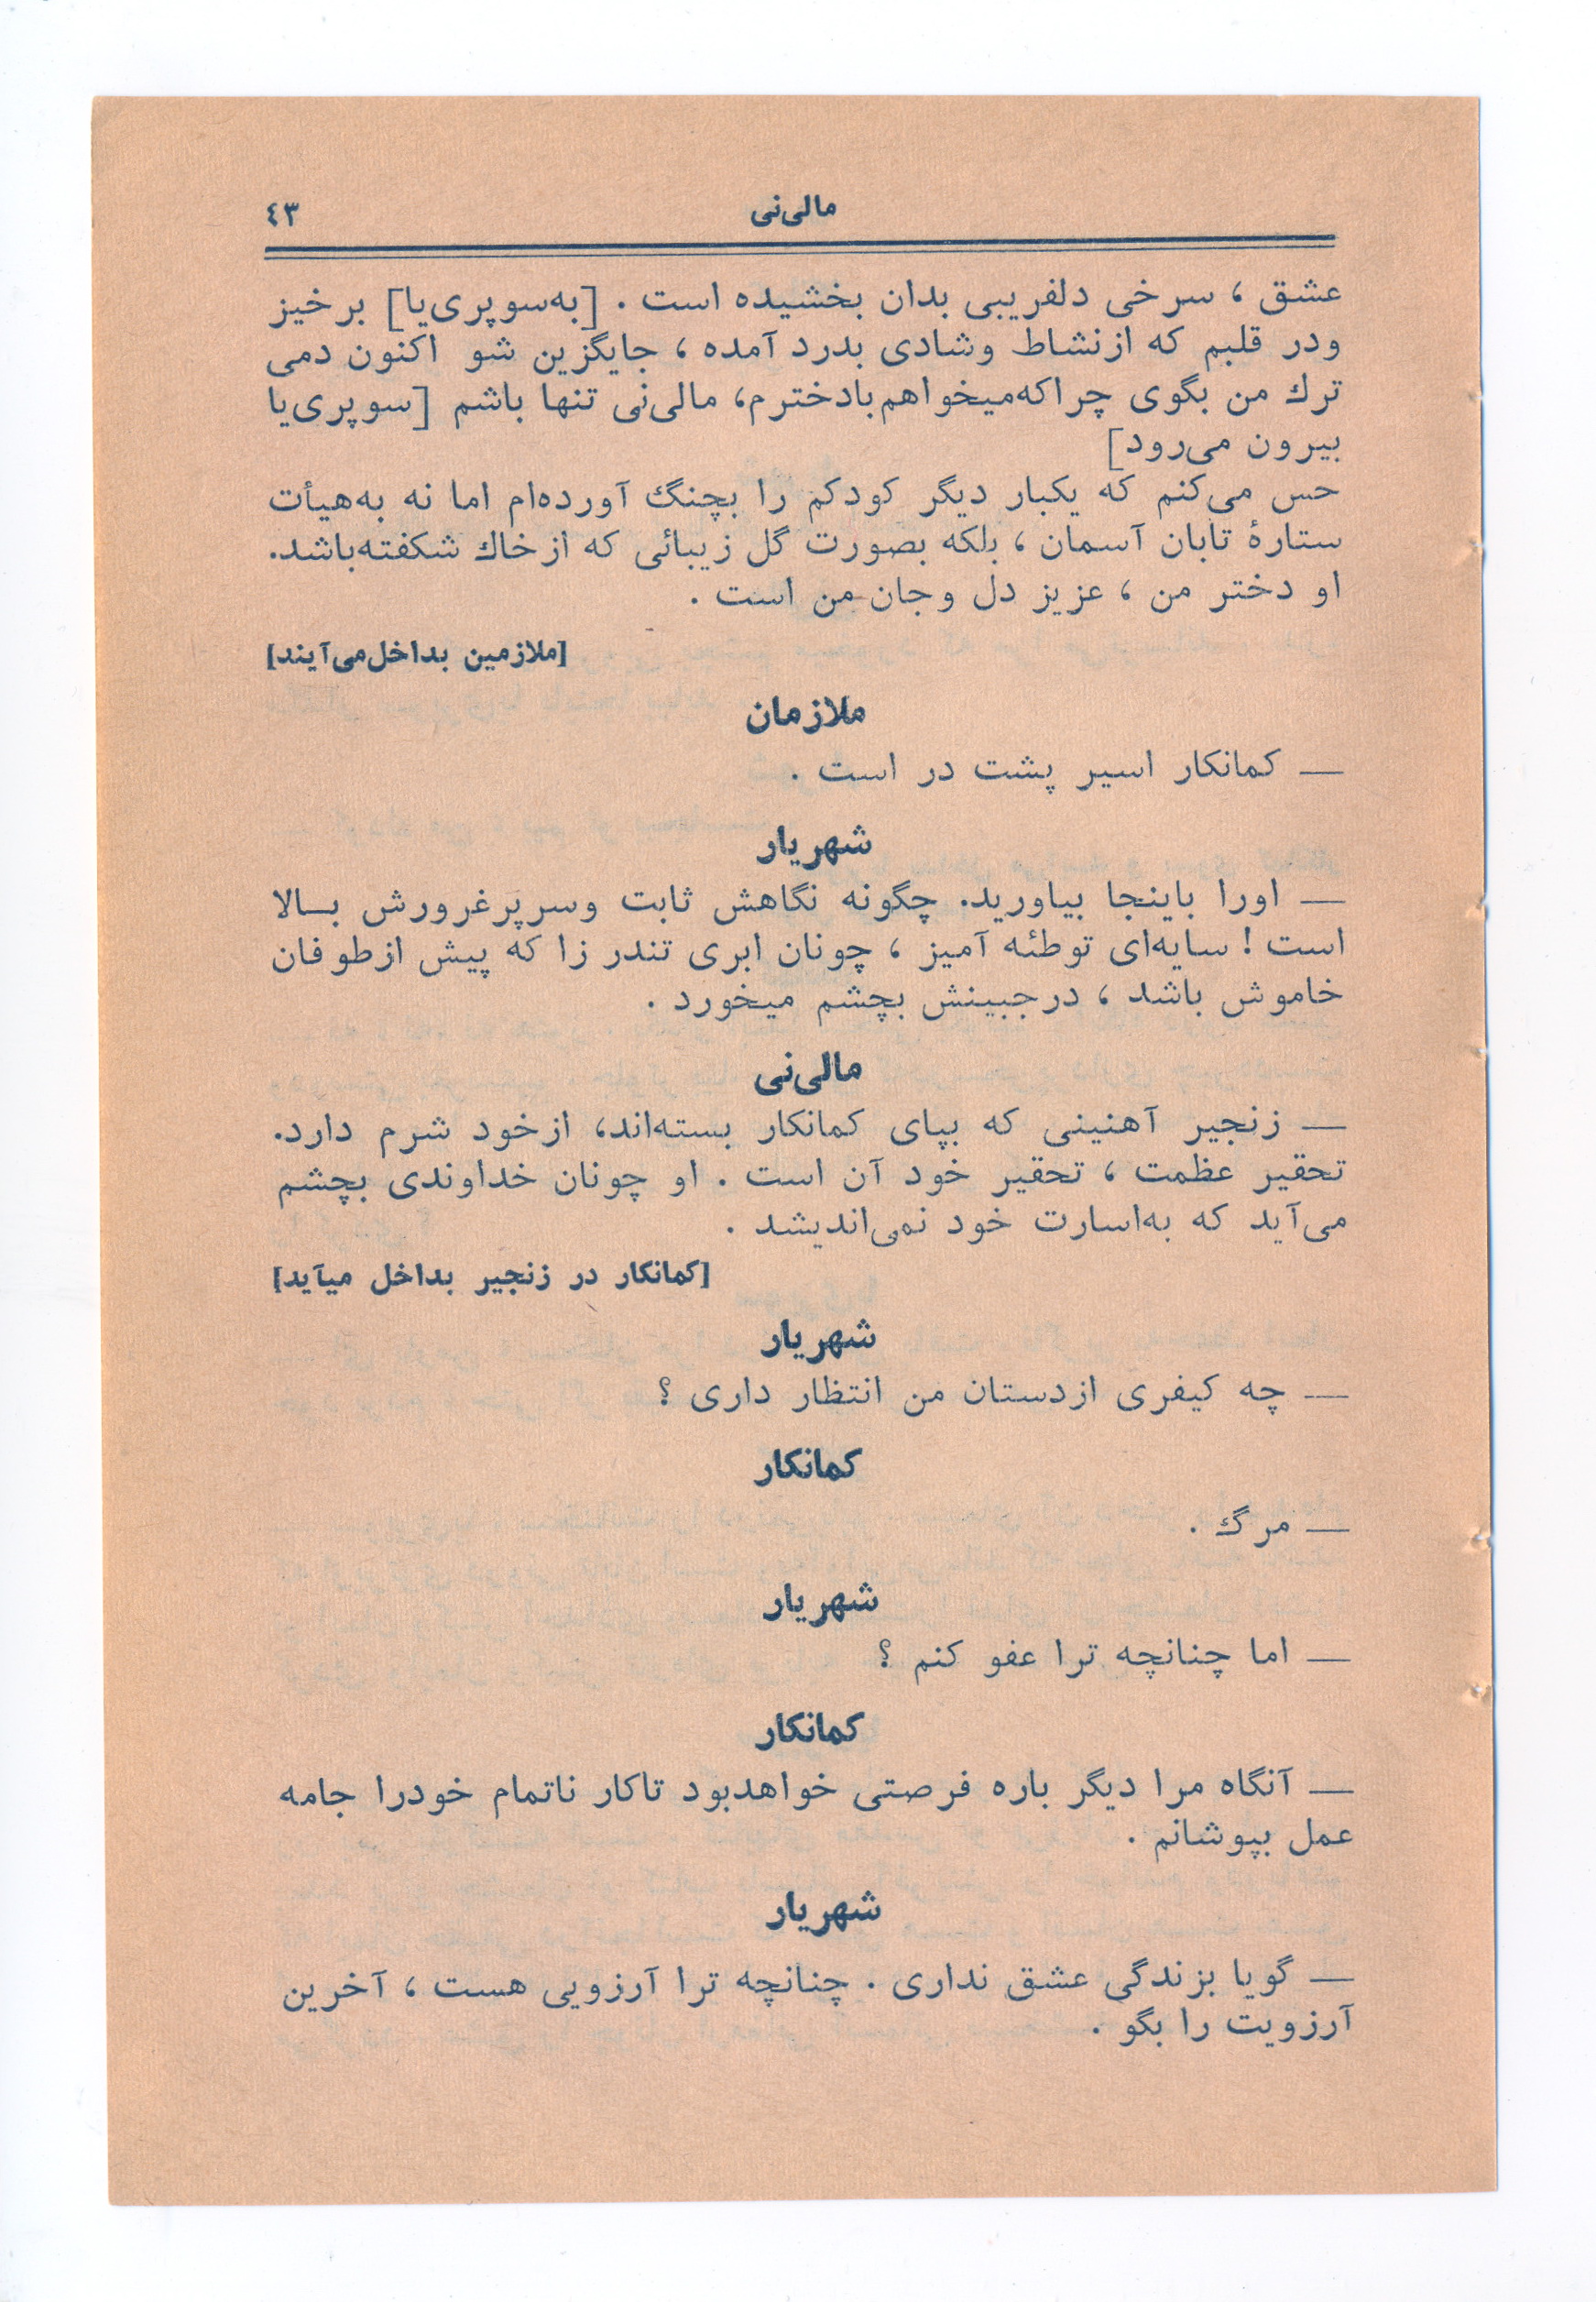 مالی‌نی ۴۳
عشق ، سرخی دلفریبی بدان بخشیده است . [به‌سوپری‌یا] برخیز
ودر قلبم که ازنشاط وشادی بدرد آمده ، جایگزین شو اکنون دمی
ترك من بگوی چراکه‌میخواهم‌بادخترم، مالی‌نی تنها باشم [سوپری‌یا
بیرون می‌رود]
حس می‌کنم که یکبار دیگر کودکم را بچنگ آورده‌ام اما نه به‌هیأت
ستارهٔ تابان آسمان ، بلکه بصورت گل زیبائی که ازخاك شکفته‌باشد.
او دختر من ، عزیز دل وجان من است .
[ملازمین بداخل‌می‌آیند]
ملازمان
— کمانکار اسیر پشت در است .
شهریار
— اورا باینجا بیاورید. چگونه نگاهش ثابت وسرپرغرورش بـالا
است ! سایه‌ای توطئه آمیز ، چونان ابری تندر زا که پیش ازطوفان
خاموش باشد ، درجبینش بچشم میخورد .
مالی‌نی
— زنجیر آهنینی که بپای کمانکار بسته‌اند، ازخود شرم دارد.
تحقیر عظمت ، تحقیر خود آن است . او چونان خداوندی بچشم
می‌آید که به‌اسارت خود نمی‌اندیشد .
[کمانکار در زنجیر بداخل میآید]
شهریار
— چه کیفری ازدستان من انتظار داری ؟
کمانکار
— مرگ .
شهریار
— اما چنانچه ترا عفو کنم ؟
کمانکار
— آنگاه مرا دیگر باره فرصتی خواهدبود تاکار ناتمام خودرا جامه
عمل بپوشانم .
شهریار
— گویا بزندگی عشق نداری . چنانچه ترا آرزویی هست ، آخرین
آرزویت را بگو .